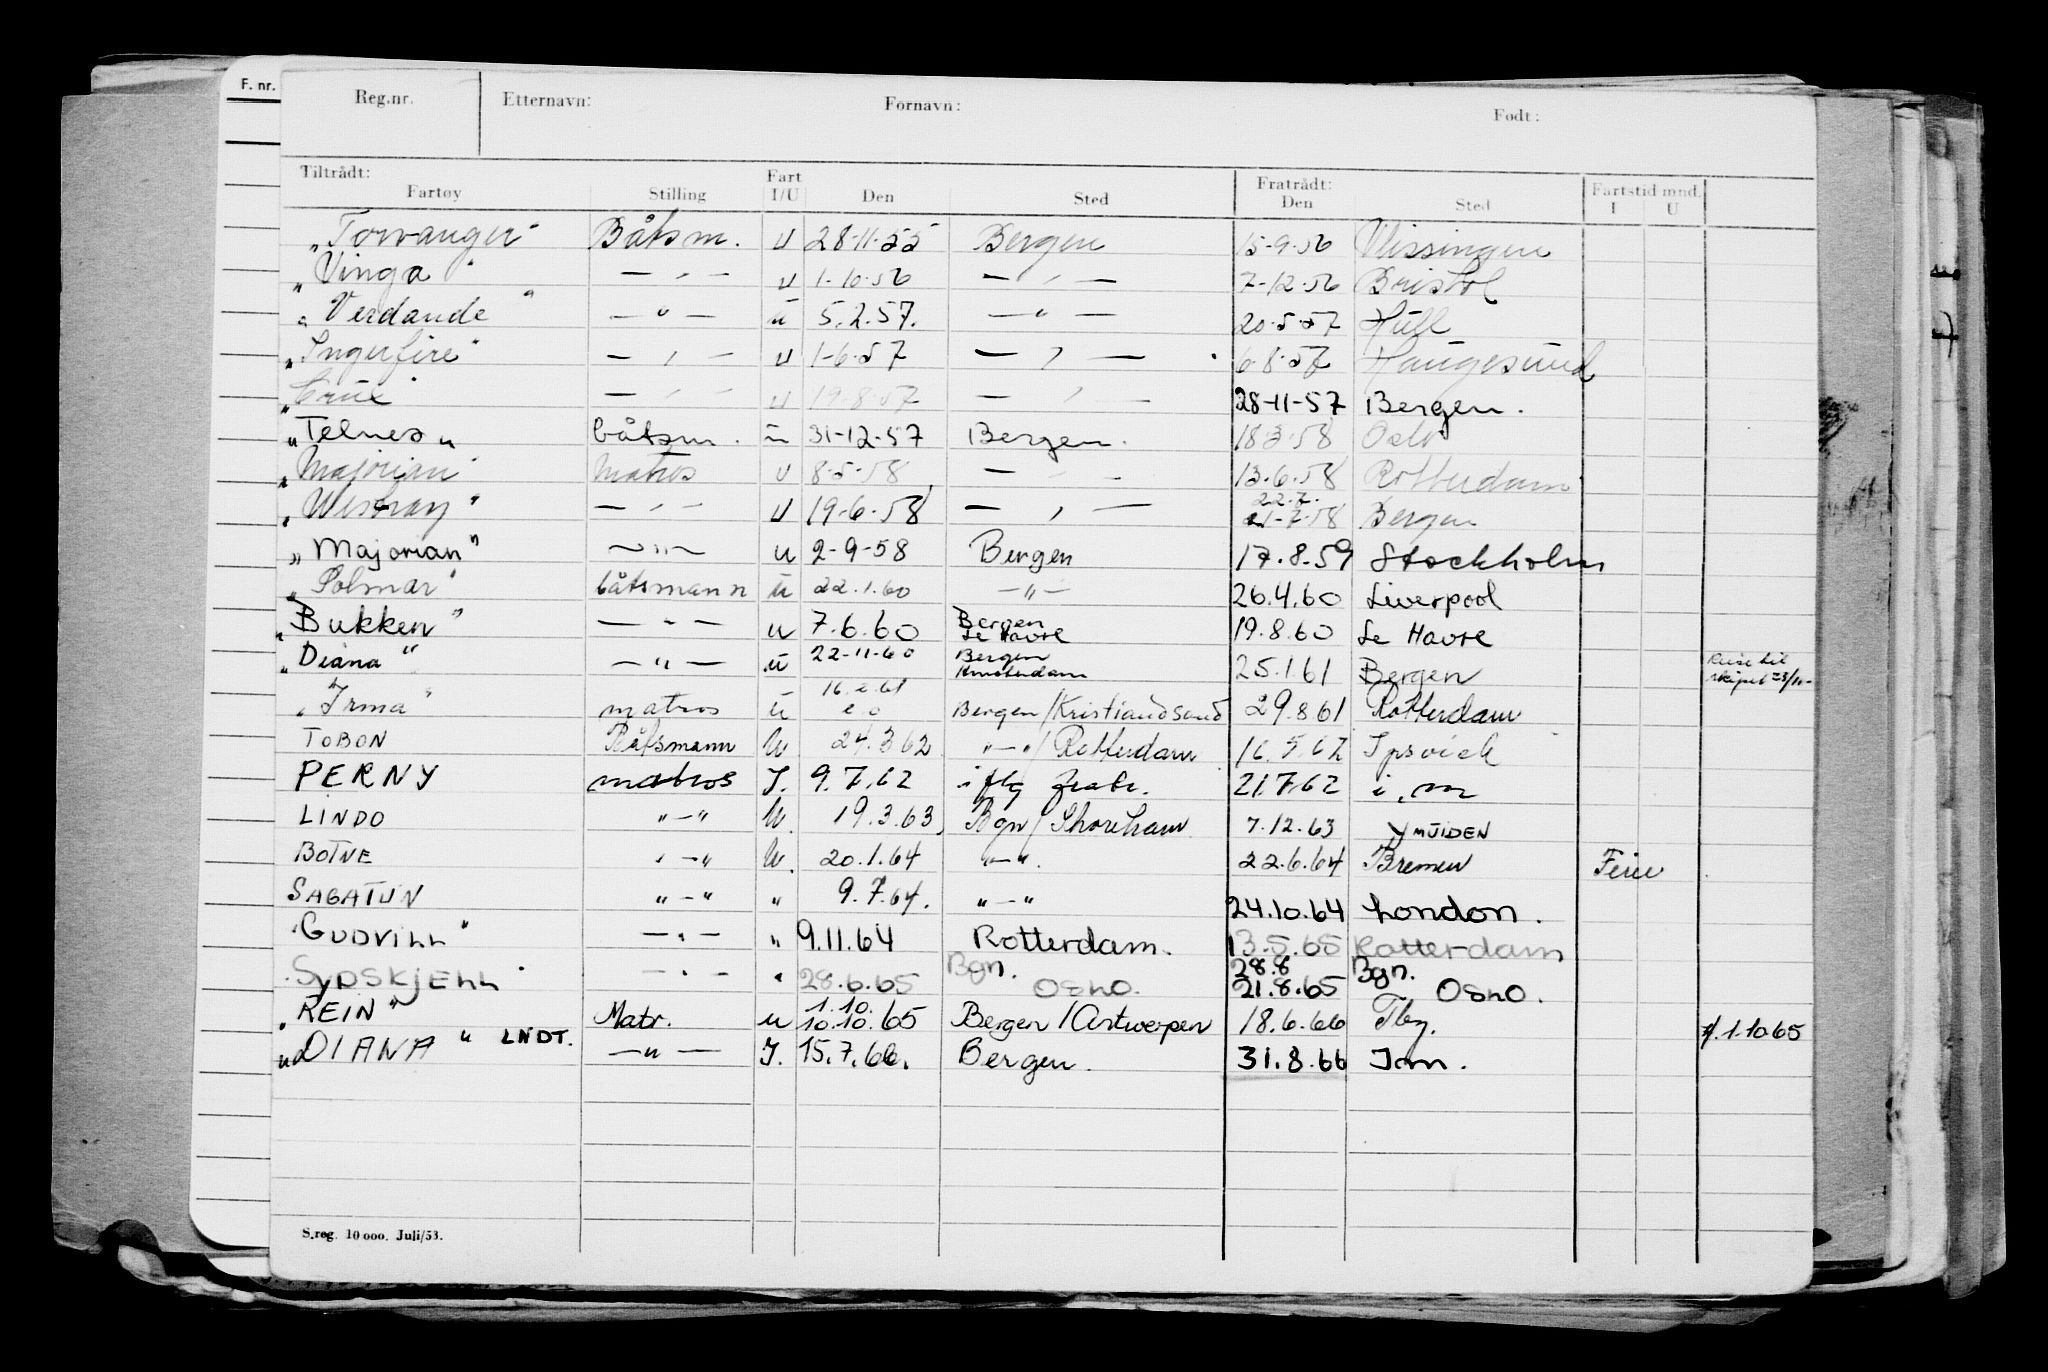 F. nr.
Reg.nr. Etternavn: Fornavn: Født:
Tiltrådt: Fart Fratrådt: Fartstid mnd.
Fartøy Stilling I/U Den Sted Den Sted I U
„Torvanger" Båtsm. u 28-11-55 Bergen 15-9-56 Vlissingen
„Vinga" — „ — u 1-10-56 — „ — 7-12-56 Bristol
„Verdande" — " — u 5.2.57. — " — 20-5-57 Hull
„Ingerfire" — „ — u 1-6-57 — „ — 6-8-57 Haugesund
— „ — u 19-8-57 — „ — 28-11-57 Bergen.
„Telnes„ båtsm. u 31-12-57 Bergen. 18 3-58 Oslo
„Majorian" Matros u 8-5-58 — „ — 13-6-58 Rotterdam
22.7.
„Westray" — „ — u 19-6-58 — „ — 21-7-58 Bergen
„Majorian" —"— u 2-9-58 Bergen 17.8.59 Stockholm
„Solmar" båtsmann u 22.1.60 —"— 26.4.60 Liverpool
„Bukken" — " — u 7.6.60 Bergen Le Havre 19.8.60 Le Havre
„Diana" — " — u 22-11-60 Bergen Amsterdam 25.1.61 Bergen Reise til skipet 23/11-
„Irma" matros u 16.2.61 Bergen/Kristiandsand 29.8.61 Rotterdam
TOBON Båtsmann U 24.3.62 "—"/Rotterdam 16.5.62 Ipsvick
PERNY matros I. 9.7.62 i flg fratr. 21.7.62 i.m
LINDO "—" U. 19.3.63 Bgn/Shoreham 7.12.63 YMUIDEN
BOTNE "—" U. 20.1.64 "—" 22.6.64 Bremen Ferie
SAGATUN "—" " 9.7.64. "—" 24.10.64 London.
"GUDVILL" — " — " 9.11.64 Rotterdam. 13.5.65 Rotterdam
Bgn. 28.8 Bgn.
"SYDSKJELL" — " — " 28.6.65 OSLO. 21.8.65 OSLO.
1.10.
„REIN" Matr. u 10.10.65 Bergen/Antwerpen 18.6.66 Tbg. 1.10 65
„DIANA" LNDT. —"— I. 15.7.66. Bergen. 31.8.66 Im.
S.reg. 10 000. Juli/53.